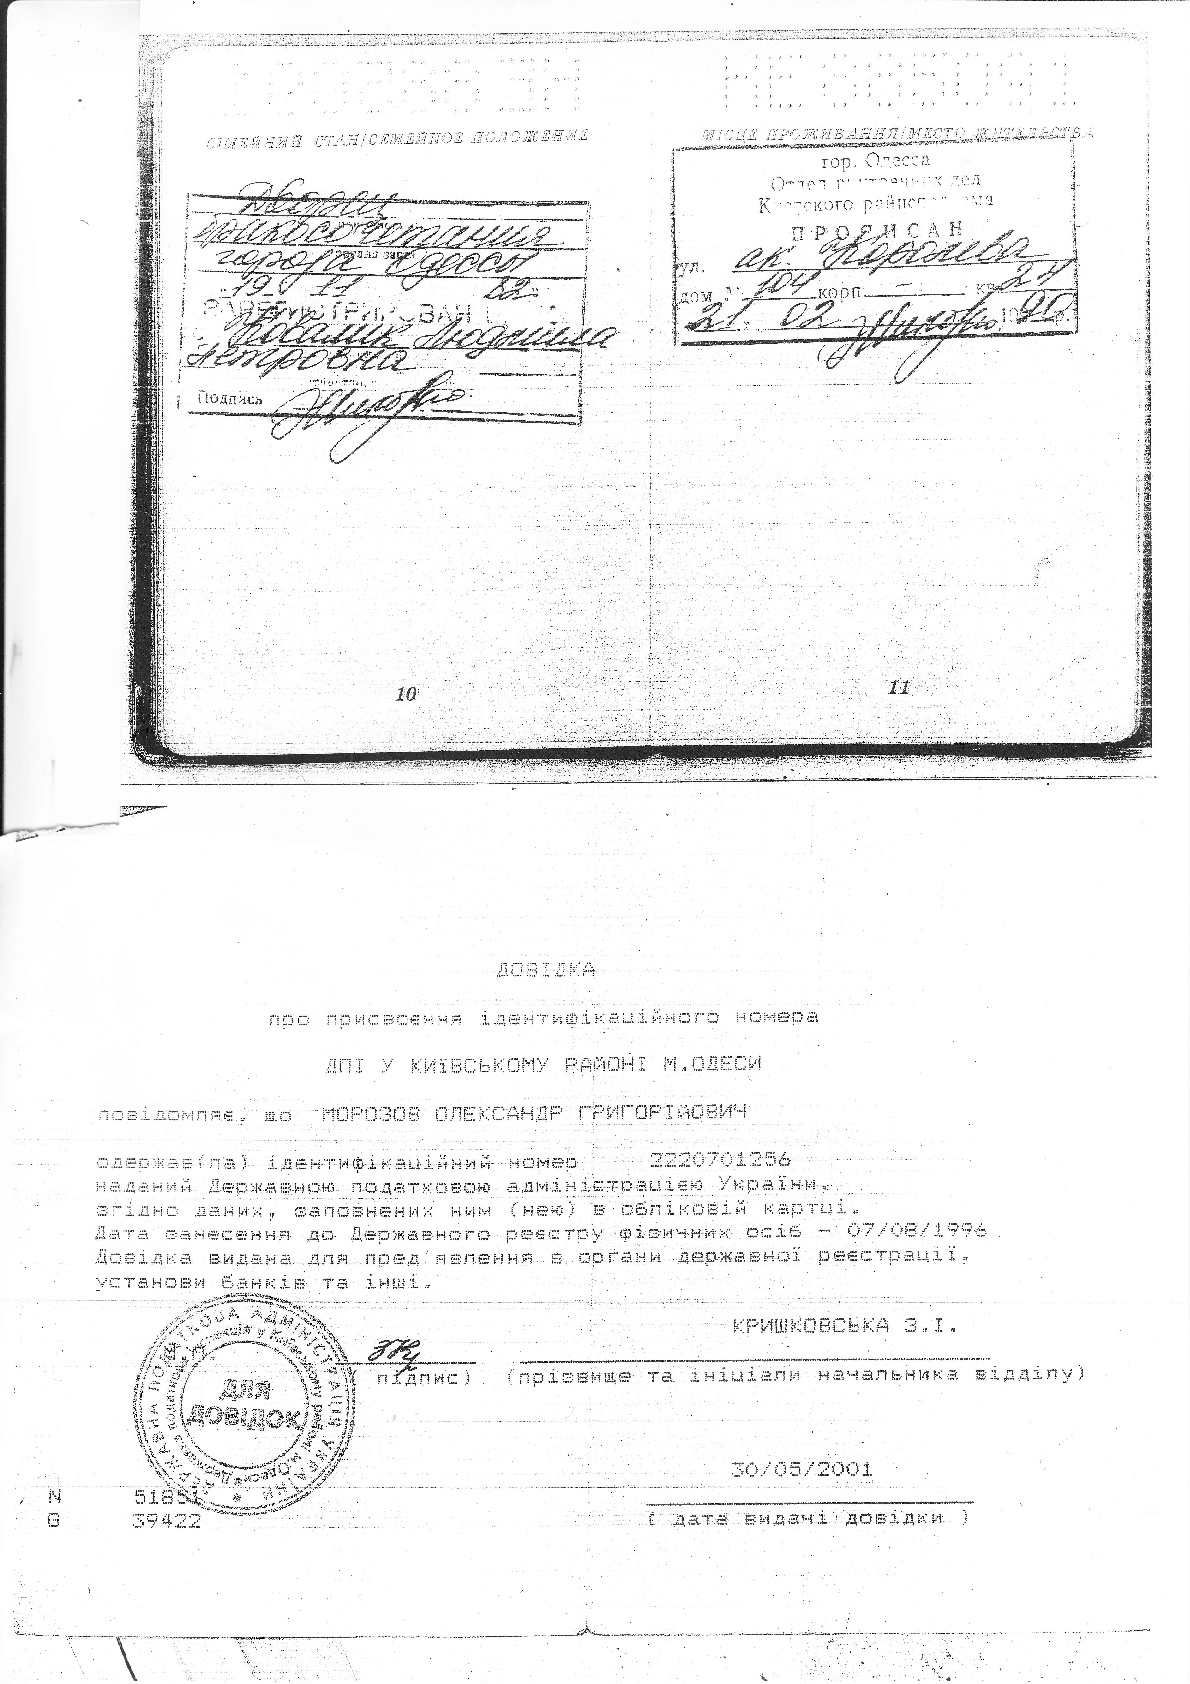 СІМЕЙНИЙ СТАН/СЕМЕЙНОЕ ПОЛОЖЕНИЕ
Дворец
бракосочетания
города Одессы
"19" 11 82
ЗАРЕГИСТРИРОВАН
Ковалик Людмила
Петровна
Подпись
10
МІСЦЕ ПРОЖИВАННЯ/МЕСТО ЖИТЕЛЬСТВА
гор. Одесса
Отдел внутренних дел
Киевского райисполкома
ПРОПИСАН
ул. ак. Королева
дом № 104 корп. — кв. 24
21. 02 1990
11
ДОВІДКА
про присвоєння ідентифікаційного номера
ДПІ У КИЇВСЬКОМУ РАЙОНІ М.ОДЕСИ
повідомляє, що МОРОЗОВ ОЛЕКСАНДР ГРИГОРІЙОВИЧ
одержав(ла) ідентифікаційний номер 2220701256
наданий Державною податковою адміністрацією України,
згідно даних, заповнених ним (нею) в обліковій картці.
Дата занесення до Державного реєстру фізичних осіб - 07/08/1996
Довідка видана для пред'явлення в органи державної реєстрації,
установи банків та інші.
КРИШКОВСЬКА З.І.
( підпис) (прізвище та ініціали начальника відділу)
ДЕРЖАВНА ПОДАТКОВА АДМІНІСТРАЦІЯ УКРАЇНИ
ДЛЯ
ДОВІДОК
30/05/2001
( дата видачі довідки )
N 51851
G 39422